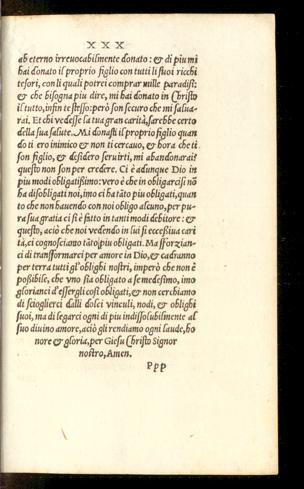 XXX
ab eterno irreuocabilmente donato: & di piu mi
hai donato il proprio figlio con tutti li suoi ricchi
tesori, con li quali potrei comprar mille paradisi:
& che bisogna piu dire, mi hai donato in Christo
il tutto, infin te stesso: però son securo che mi salua-
rai. Et chi vedesse la tua gran carità, sarebbe certo
della sua salute. Mi donasti il proprio figlio quan
do ti ero inimico & non ti cercauo, & hora che ti
son figlio, & desidero seruirti, mi abandonarai?
questo non son per credere. Ci è adunque Dio in
piu modi obligatissimo: vero è che in obligarcisi nõ
ha disobligati noi, imo ci ha tãto piu obligati, quan
to che non hauendo con noi obligo alcuno, per pu-
ra sua gratia ci si è fatto in tanti modi debitore: &
questo, aciò che noi vedendo in lui si eccessiua cari
tà, ci cognosciamo tãto piu obligati. Ma sforzian-
ci di transformarci per amore in Dio, & cadranno
per terra tutti gl'oblighi nostri, imperò che non è
possibile, che vno sia obligato a se medesimo, imo
gloriarci d'essergli cosi obligati, & non cerchiamo
di scioglierci dalli dolci vinculi, nodi, & oblighi
suoi, ma di legarci ogni di piu indissolubilmente al
suo diuino amore, aciò gli rendiamo ogni laude, ho
nore & gloria, per Giesu Christo Signor
nostro, Amen.
Ppp